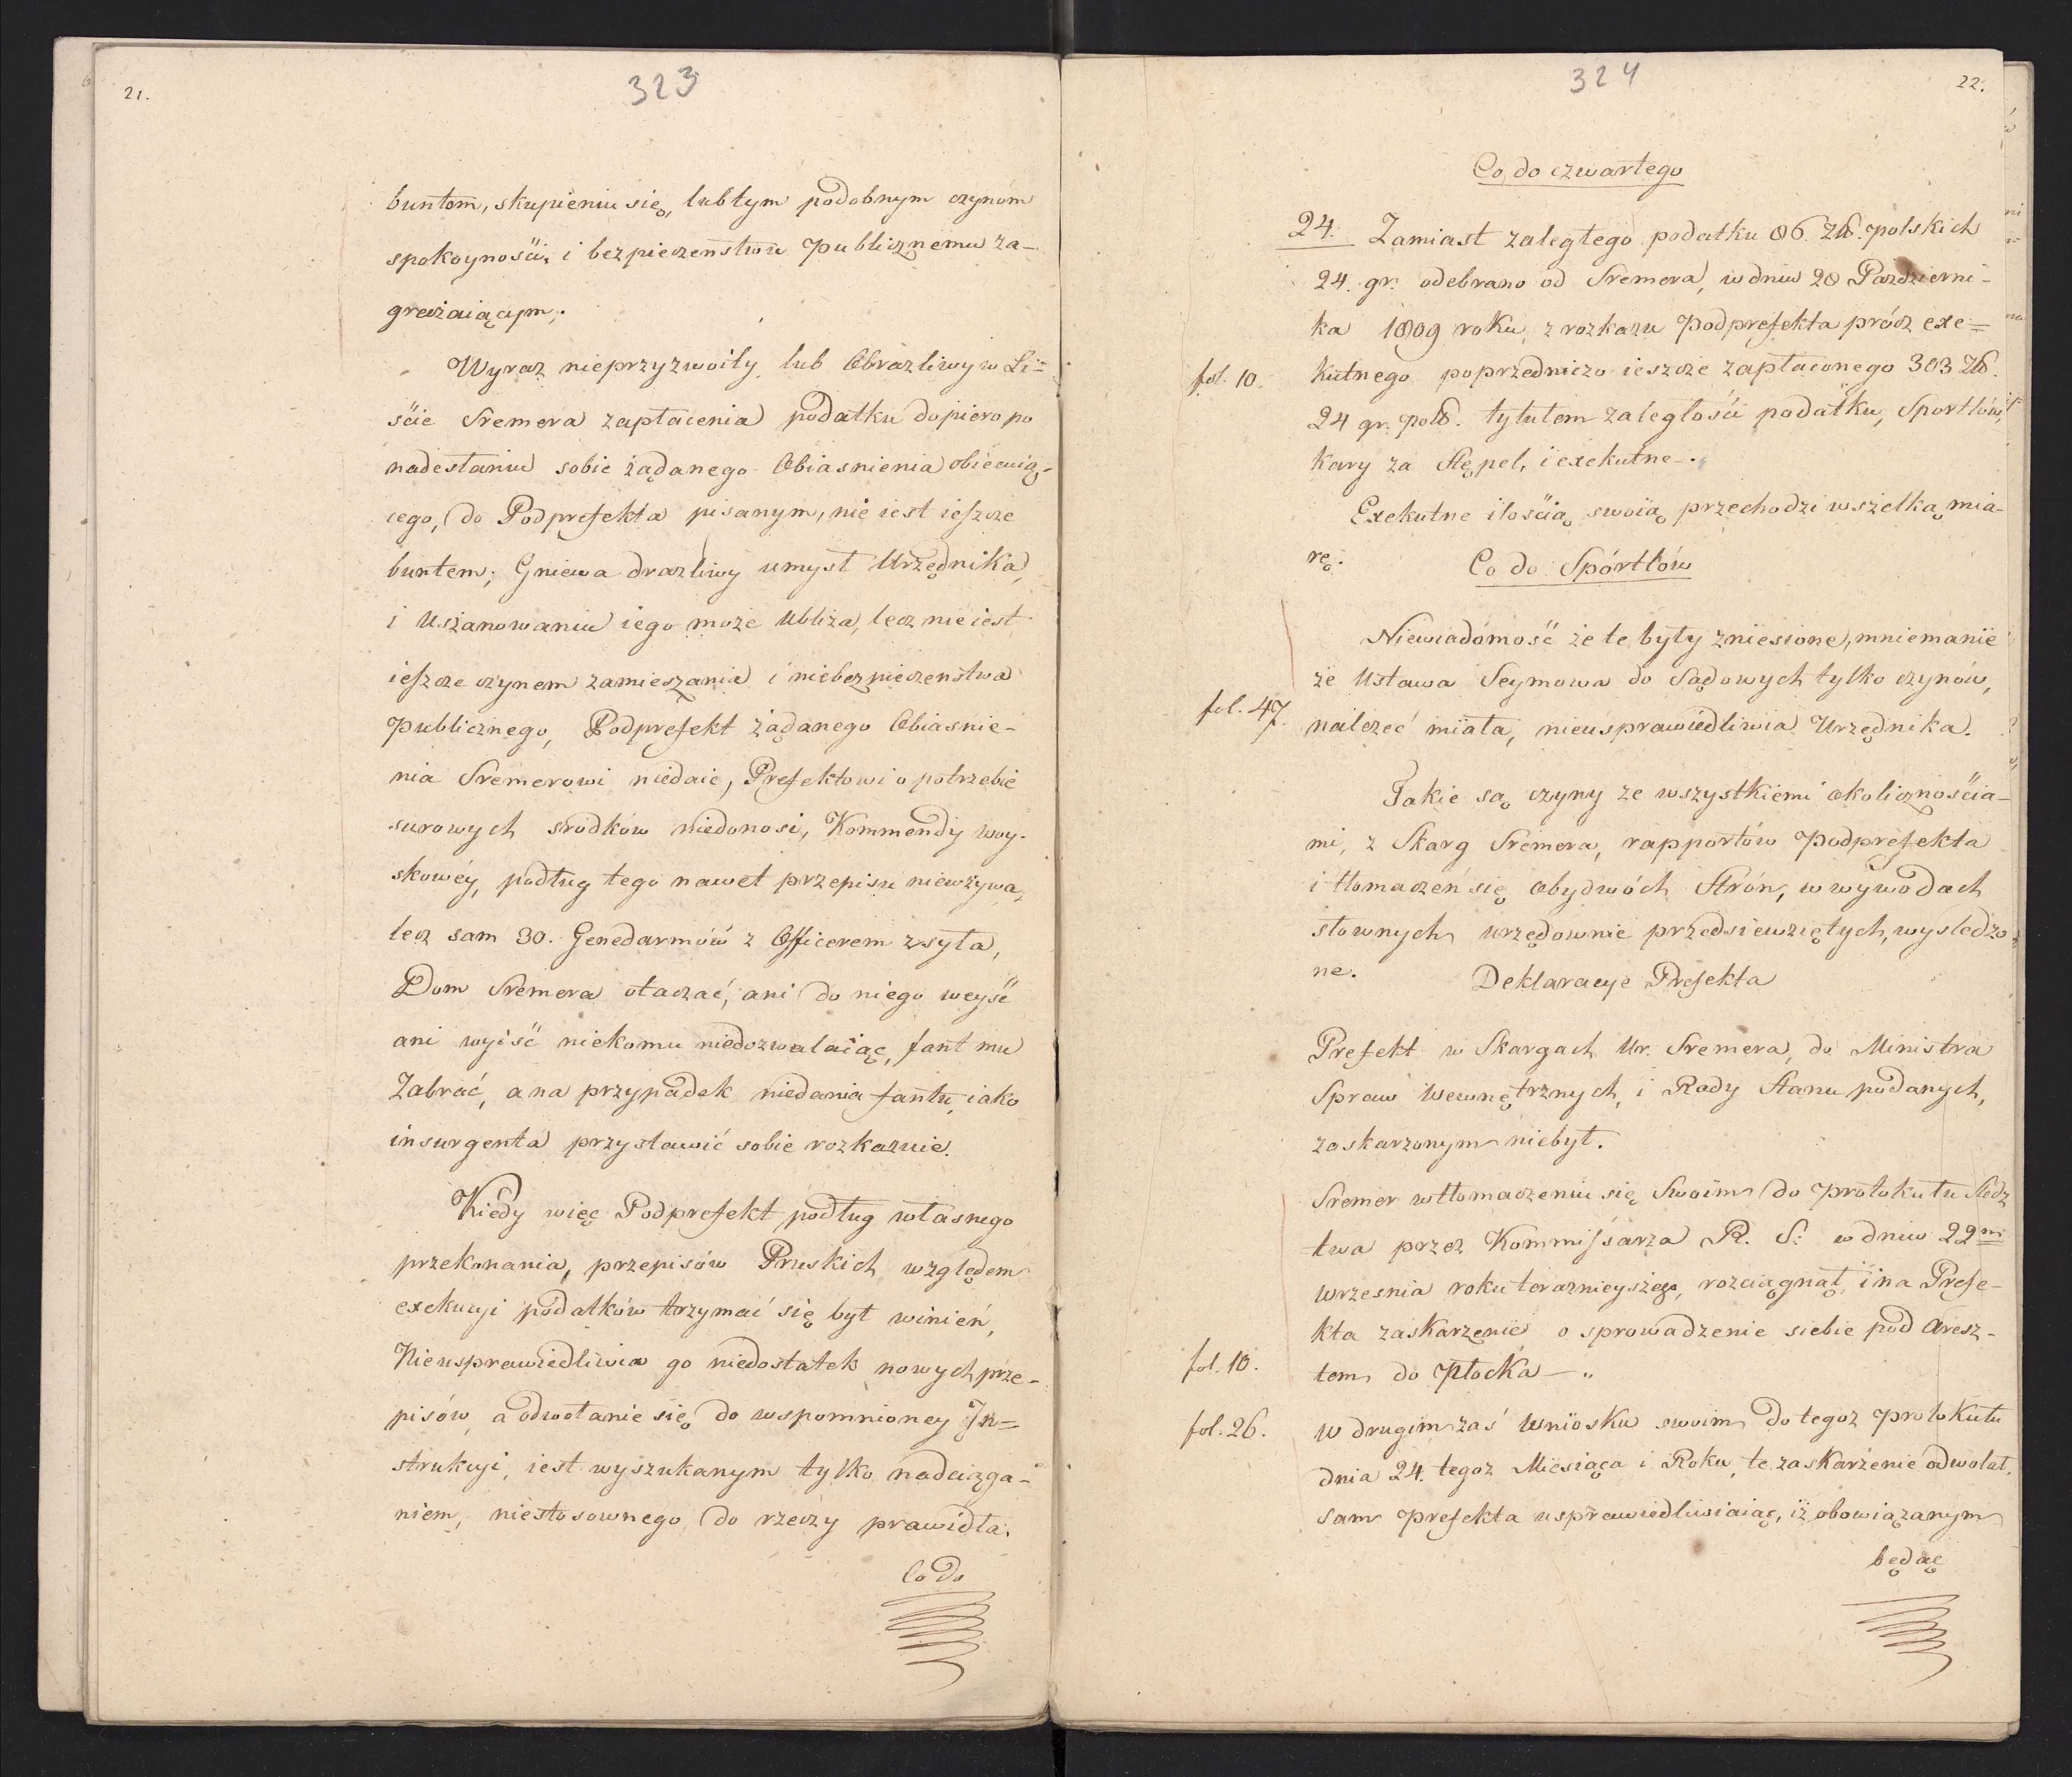 21.
323
buntom, skupieniu się, lub tym podobnym czynom
spokoyności i bezpieczenstwu publicznemu za-
grażaiącym.
Wyraz nieprzyzwoity lub Obrazliwy w Li=
ście Sremera zapłacenia podatku dopiero po
nadesłaniu sobie żądanego Obiasnienia obiecuią-
cego, do Podprefekta pisanym, nie iest ieszcze
buntem; Gniewa drazliwy umysł Urzędnika,
i Uszanowaniu iego może Ubliża, lecz nie iest
ieszcze czynem zamieszania i niebezpieczenstwa
publicznego, Podprefekt żądanego Obiasnie-
nia Sremerowi niedaie, Prefektowi o potrzebie
surowych srodków niedonosi, Kommendy woy-
skowéy, podług tego nawet przepisu nieużywa,
lecz sam 30. Genedarmów z Officerem zsyła,
Dom Sremera otaczać, ani do niego weyść
ani wyiść niekomu niedozwalaiąc, fant mu
Zabrać, a na przypadek niedania fantu, iako
insurgenta przystawić sobie rozkazuie.
Kiedy więc Podprefekt podług własnego
przekonania, przepisów Pruskich względem
exekucyi podatków trzymać się był winień,
Nieusprawiedliwia go niedostatek nowych prze-
pisów, a odwołanie się do wspomnioney In=
strukcyi, iest wyszukanym tylko nadciąga-
niem, niestosownego do rzeczy prawidła.
Co do
324
22.
Co do czwartego
24. Zamiast zaległego podatku 86. Zł. polskich
24. gr. odebrano od Sremera, w dniu 28 Pazdzierni-
ka 1809 roku, z rozkazu Podprefekta prócz exe=
fol. 10. kutnego poprzedniczo ieszcze zapłaconego 303 Zł.
24 gr. pols. tytułem zaległości podatku, Sportlów,
Kary za Stępel, i exekutne.
Exekutne ilością swoią przechodzi wszelką mia-
rę.
Co do Spórtlów
Niewiadomość że te były zniesione, mniemanie
że Ustawa Seymowa do Sądowych tylko czynów,
fol. 47. należeć miała, nieusprawiedliwia Urzędnika.
Takie są czyny ze wszystkiemi okolicznościa-
mi, z Skarg Sremera, rapportów Podprefekta
i tłomaczeń się obydwóch Strón, w wywodach
słownych urzędownie przedsiewziętych, wysledzo
ne.
Deklaracye Prefekta
Prefekt w Skargach Ur. Sremera, do Ministra
Spraw Wewnętrznych, i Rady Stanu podanych,
zaskarzonym niebył.
Sremer w tłomaczeniu się Swoim do protokułu Sledz
twa przez Kommissarza R. S: w dniu 22m
wrzesnia roku terazniejszego, rozciągnął, i na Prefe-
kta zaskarzenie o sprowadzenie siebie pod aresz-
fol. 10. tem do Płocka —
fol. 26. w drugim zaś wniosku swoim do tegoz protokułu
dnia 24. tegoz Miesiąca i Roku, te zaskarżenie odwołał,
sam prefekta usprawiedliwiaiąc, iż obowiązanym
będąc